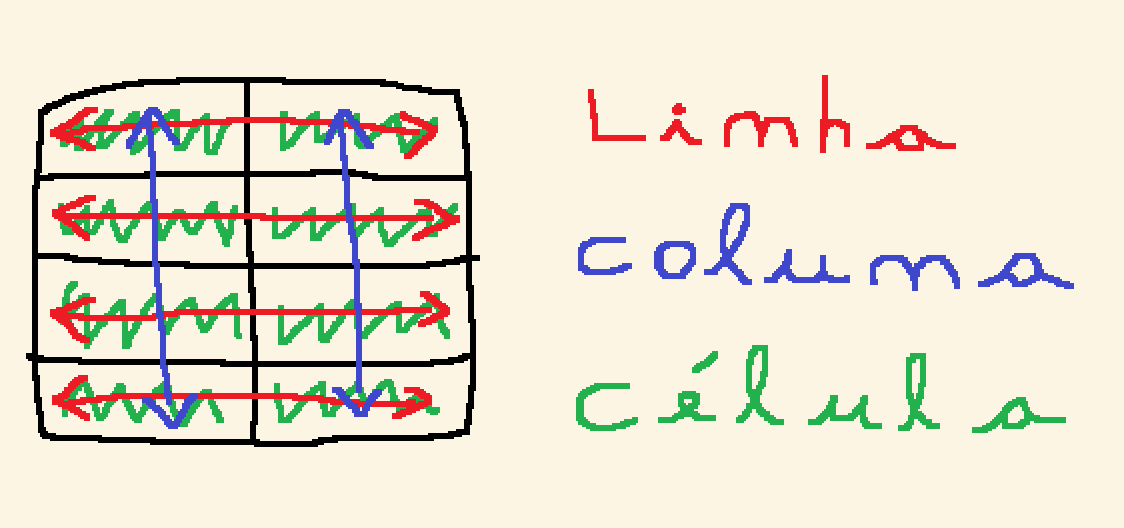 Linha
coluna
célula